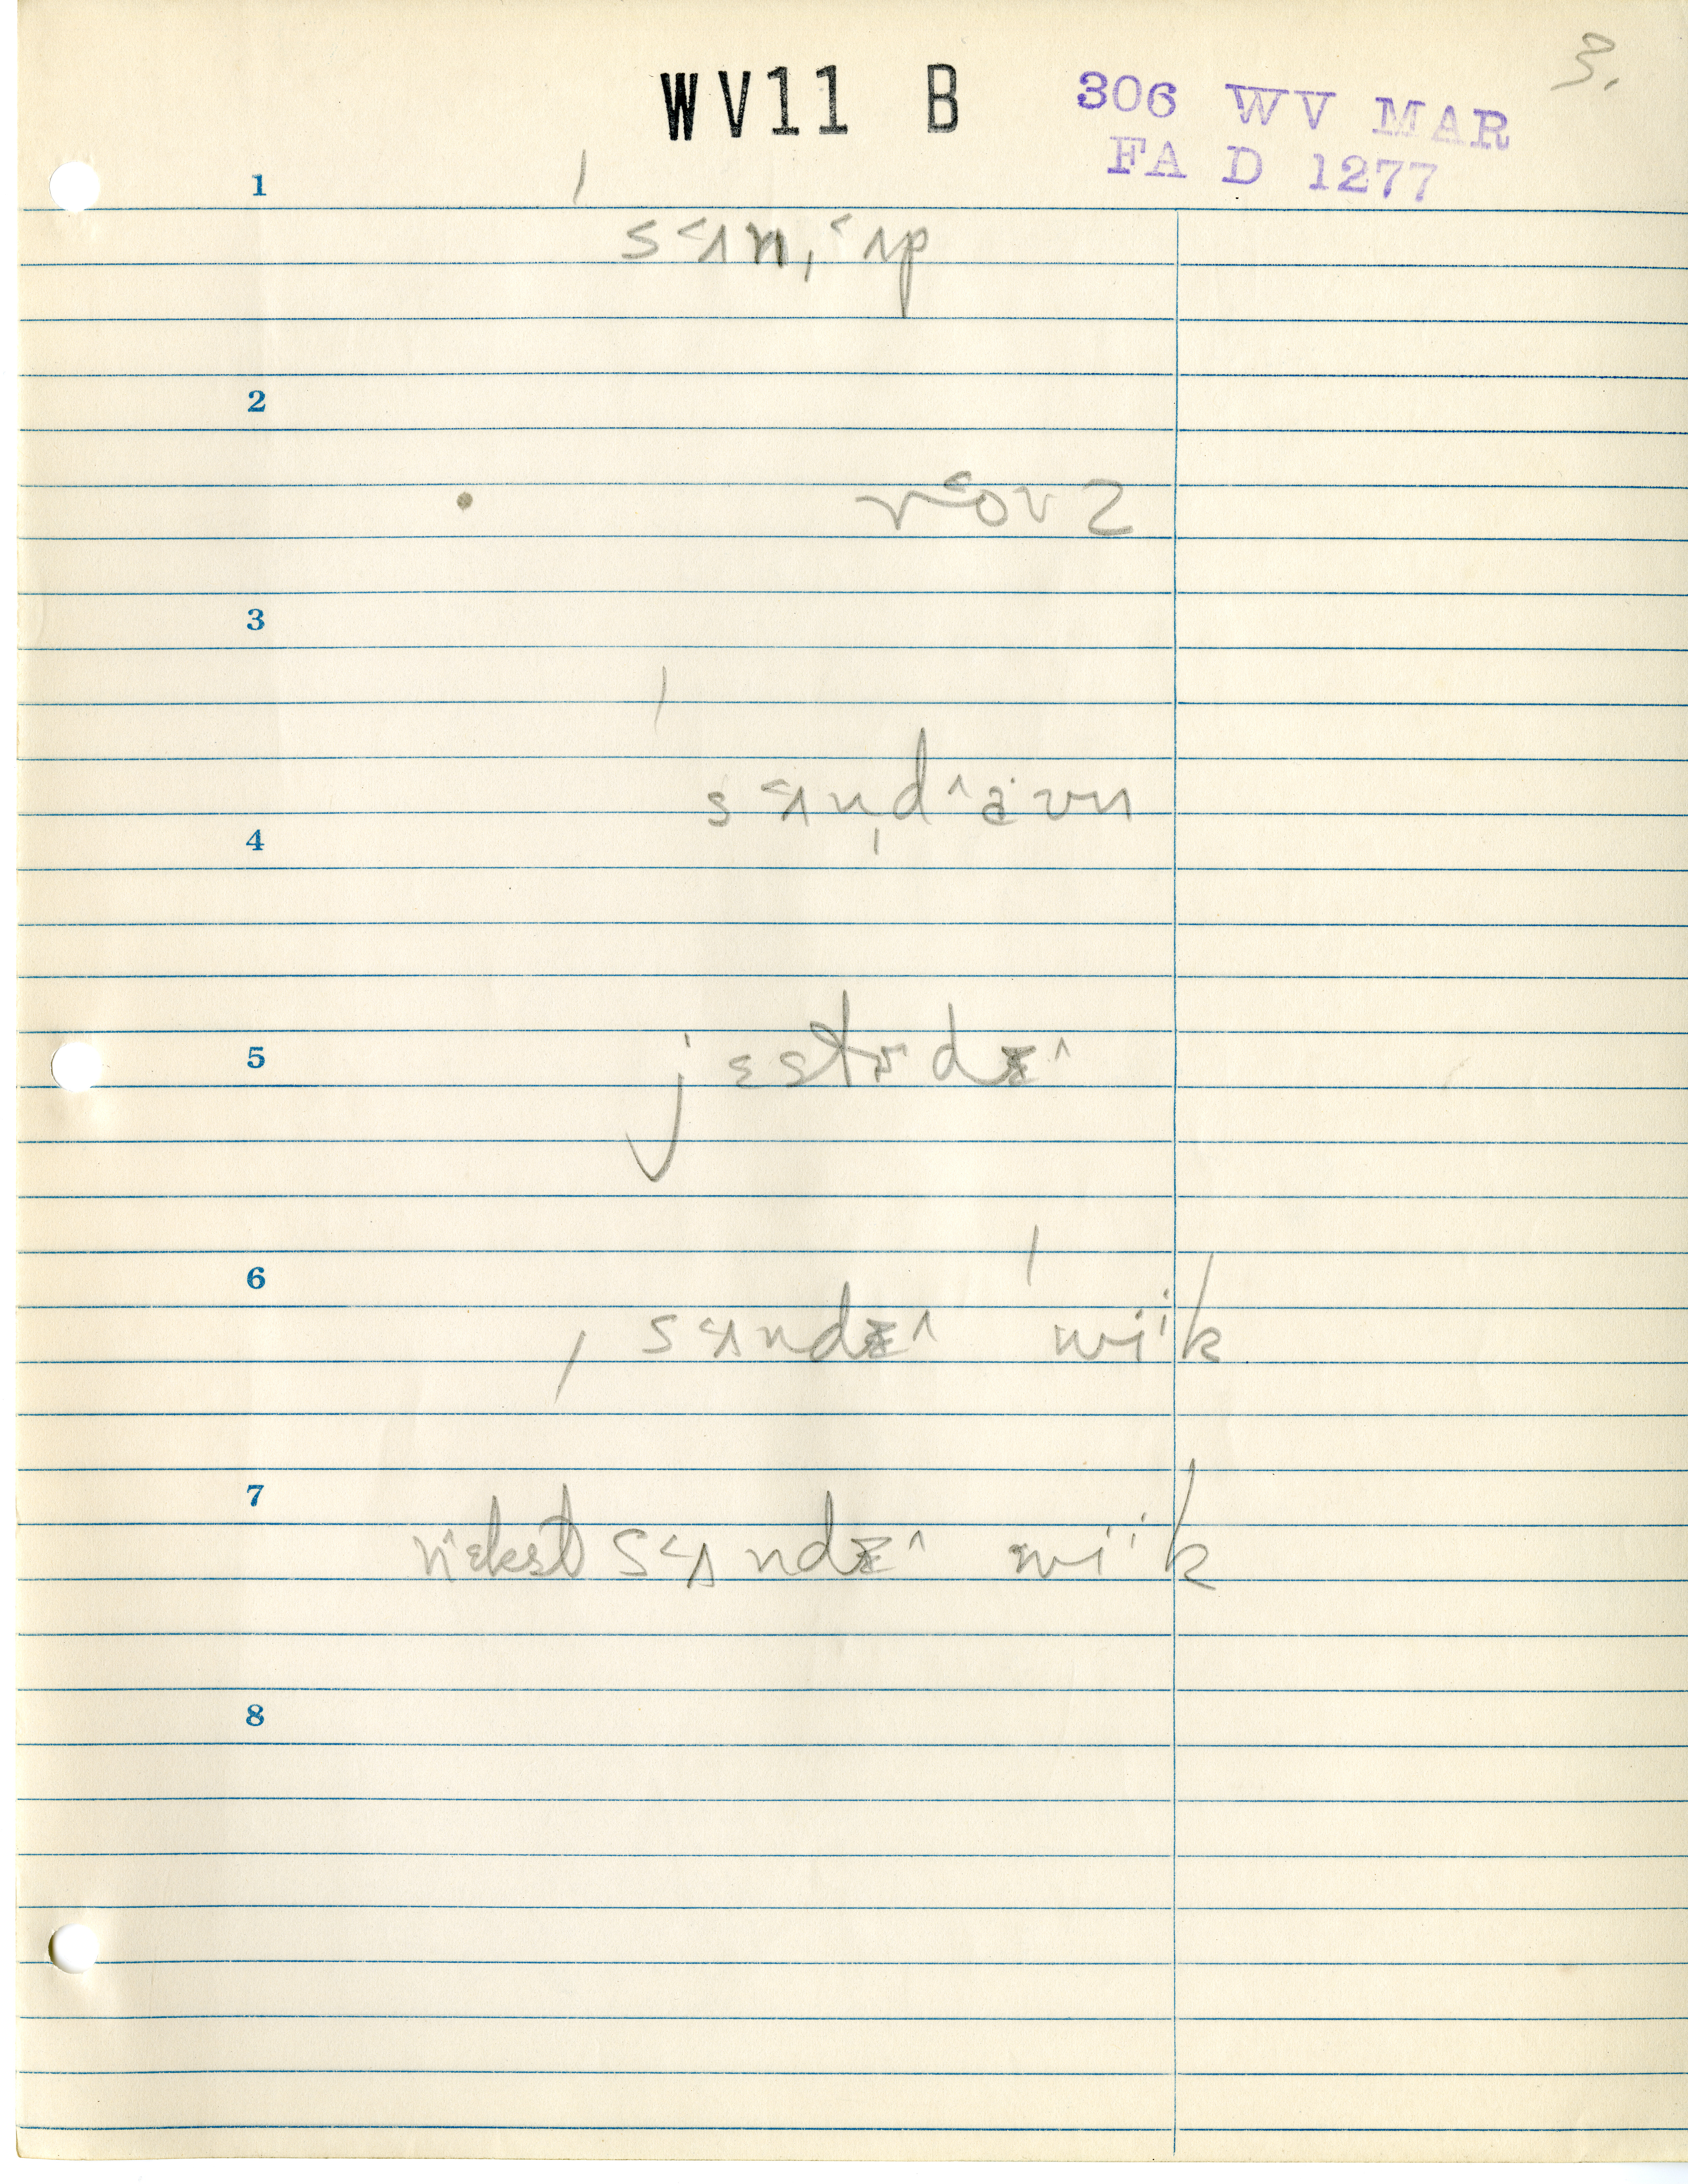 3.
WV11 B
306 WV MAR
FA D 1277
1
sʌ˂n, ˂ʌp
2
r˂ovz
3
sʌ˂n̩d^a˙vn
4
5
jɛstɚdɪ^
6
sʌ˂ndɪ^ wi˙k
7
nɛkst sʌ˂ndɪ^ wi˙k
8